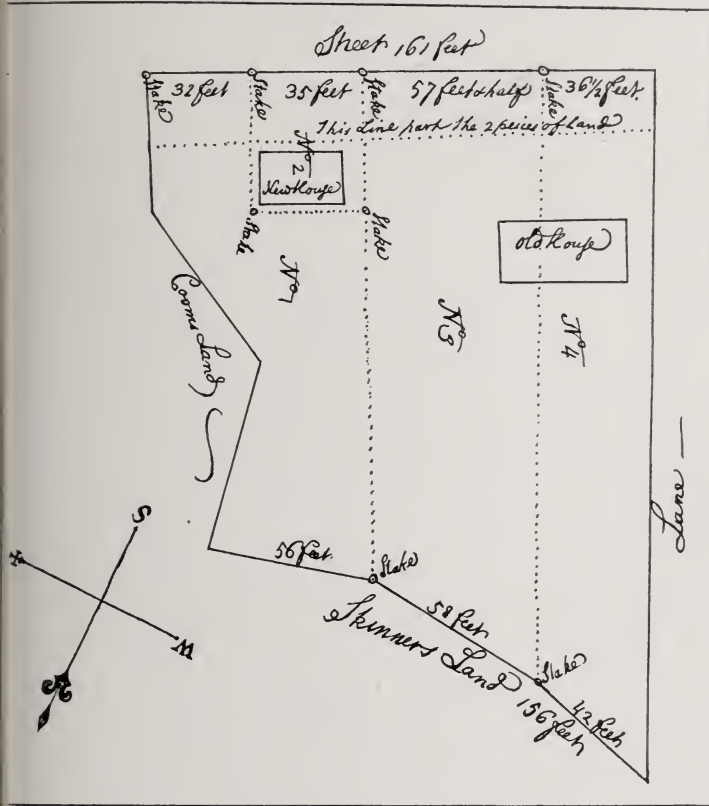 Street 161 feet
Stake
32 feet
Stake
35 feet
Stake
57 feet & half
Stake
36 1/2 feet.
This Line part the 2 peices of Land
No 2
New House
Stake
Stake
No 1
Old House
No 3
No 4
Cooms Land
Lane
S
W
56 feet.
Stake
58 feet
Stake
42 feet
Skinners Land 156 feet